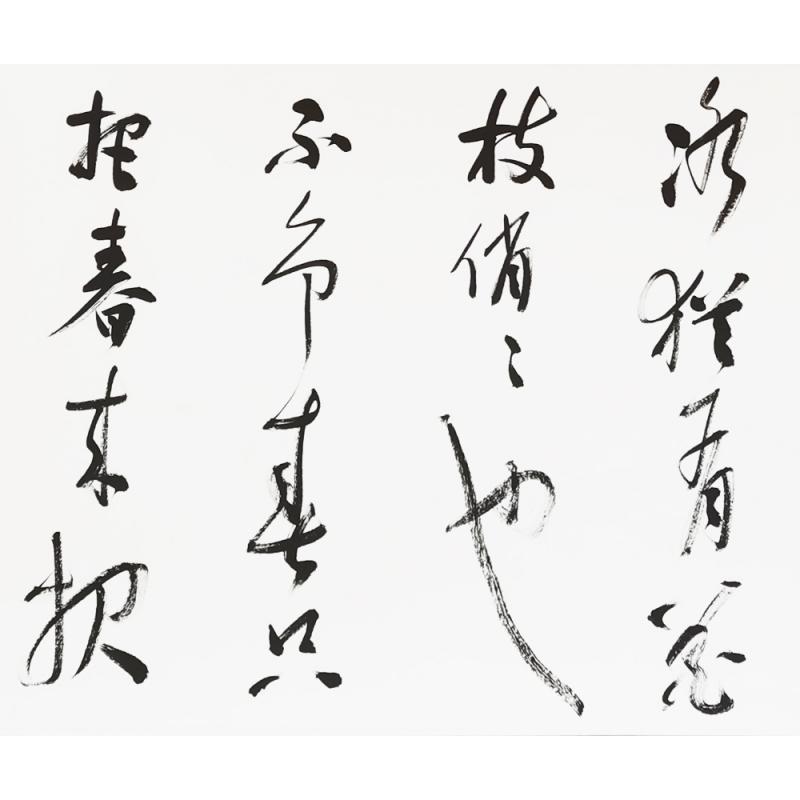 冰猶有花
枝俏々也
不争春只
把春来报